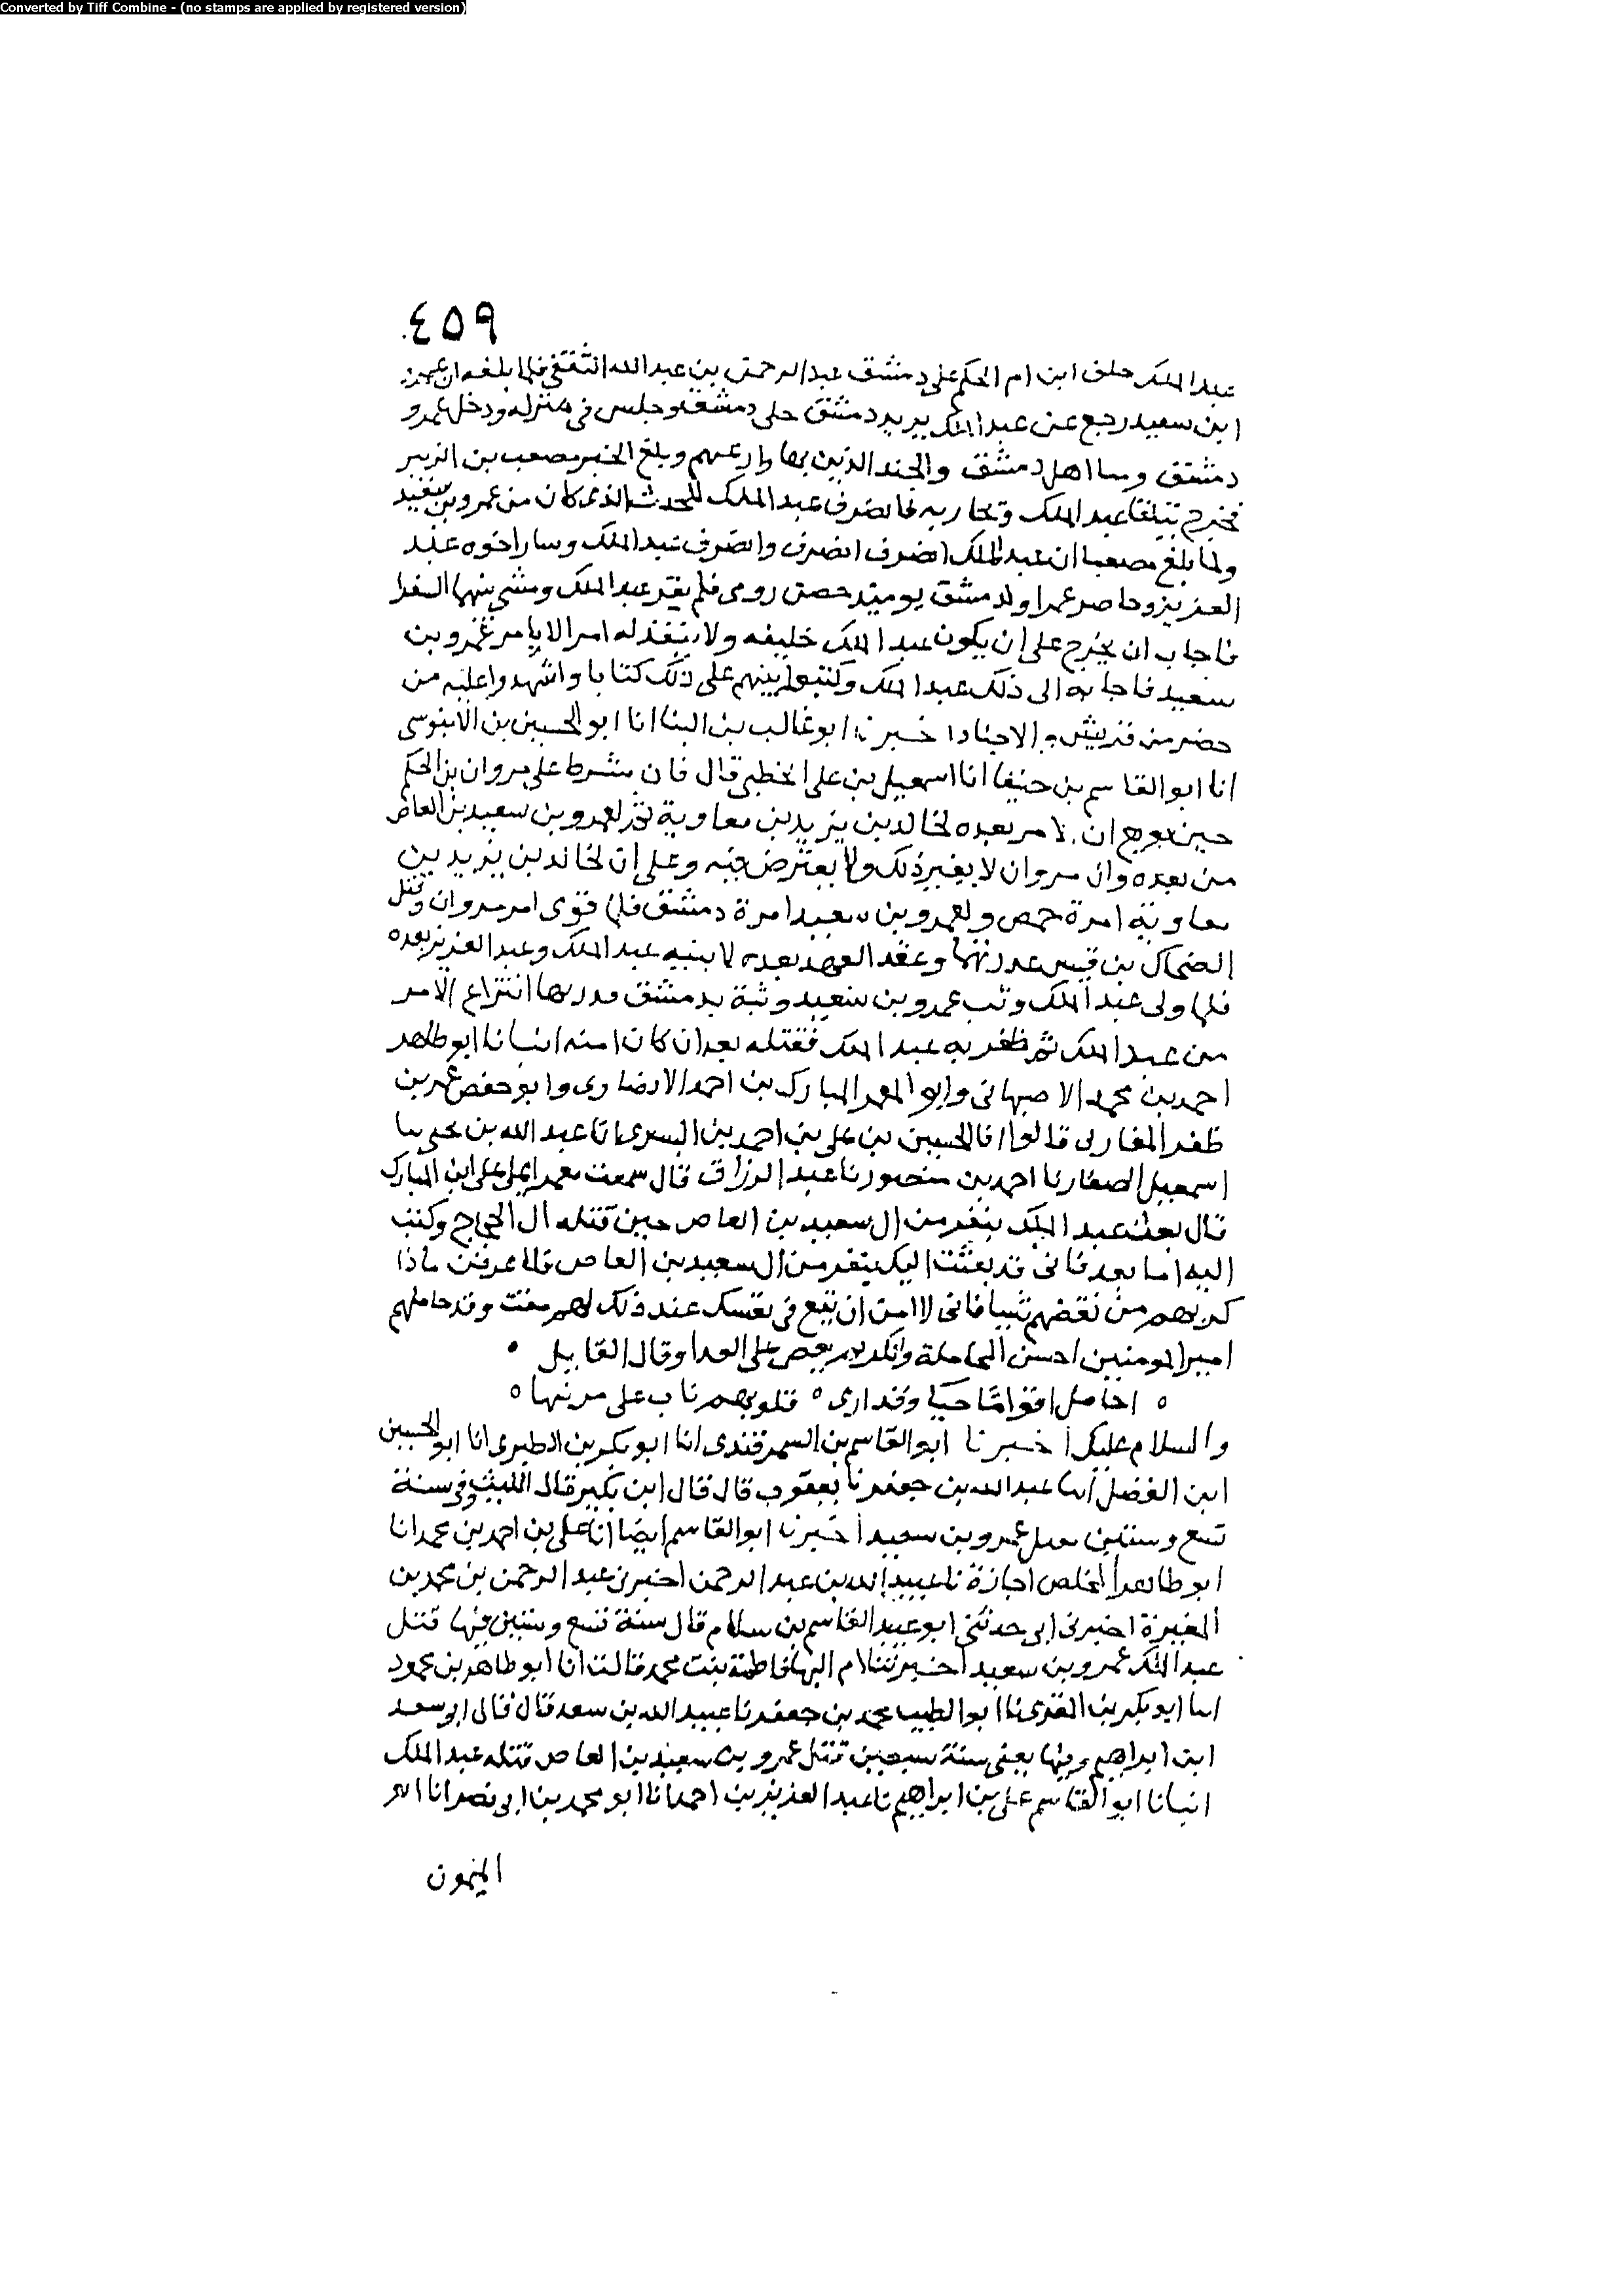 Converted by Tiff Combine - (no stamps are applied by registered version)
٤٥٩
عبد الملك خلف ابن ام الحكم على دمشق عبد الرحمن بن عبد الله الثقفي فلما بلغه ان عمرو
ابن سعيد رجع عن عبد الملك يريد دمشق خلى دمشق وجلس في منزله ودخل عمرو
دمشق وسا اهل دمشق والجند الذين بها وبلغ الخبر مصعب بن الزبير
فخرج يتلقا عبد الملك ويحاربه فانصرف عبد الملك للحدث الذي كان من عمرو بن سعيد
ولما بلغ مصعبا ان عبد الملك انصرف انصرف وانصرف عبد الملك وسار اخوه عبد
العزيز وحاصر عمرا ولد مشق يوميذ حصن رومي فلم يقر عبد الملك ومشي بينهما السفرا
فاجاب ان يخرج على ان يكون عبد الملك خليفه ولا ينفذ له امر الا بامر عمرو بن
سعيد فاجابه الى ذلك عبد الملك وكتبوا بينهم على ذلك كتابا واشهدوا عليه من
حضر من قريش والاجناد اخبرنا ابو غالب بن البنا انا ابو الحسين بن الابنوسي
انا ابو القاسم بن حنيفا انا اسمعيل بن علي الخطبي قال فان شرط على مروان بن الحكم
حين بويع ان الامر بعده لخالد بن يزيد بن معاوية ثم لعمرو بن سعيد بن العاص
من بعده وان مروان لا يغير ذلك ولا يعترض فيه وعلى ان لخالد بن يزيد بن
معاوية امرة حمص ولعمرو بن سعيد امرة دمشق فلما قوى امر مروان وقتل
الضحاك بن قيس عد رنهما وعقد العهد بعده لابنيه عبد الملك وعبد العزيز بعده
فلما ولى عبد الملك وثب عمرو بن سعيد وثبة بدمشق انتزاع الامر
من عبد الملك ثم ظفر به عبد الملك فقتله بعد ان كان امنه انبانا ابو طاهر
احمد بن محمد الاصبهاني وابو المعمر المبارك بن احمد الانصاري وابو حفص عمر بن
ظفر المغازلي قالوا انا الحسين بن علي بن احمد بن البسري انا عبد الله بن يحيى نا
اسمعيل الصفار نا احمد بن منصور نا عبد الرزاق قال سمعت معمر ايملى على ابن المبارك
قال بعث عبد الملك بنفر من ال سعيد بن العاص حين قتله ال الحجاج وكتب
اليه اما بعد فاني قد بعثت اليك بنفر من ال سعيد بن العاص عرفت ماذا
كد بهم من نقضهم شيا فاني لا امن ان يقع في نفسك عند ذلك لهم مقت وقد حاملهم
امير المومنين احسن المجاملة على العدا وقال القايل
احامل اقواما حيا وقد ارى قلوبهم تاب على مرنها
والسلام عليك اخبرنا ابو القاسم بن السمرقندي انا ابو بكر بن الطبري انا ابو الحسين
ابن الفضل انا عبد الله بن جعفر نا يعقوب قال قال ابن بكير قال الليث وفي سنة
تسع وستين عمرو بن سعيد اخبرنا ابو القاسم ايضا انا علي بن احمد بن محمد انا
ابو طاهر المخلص اجازة نا عبيد الله بن عبد الرحمن اخبرني عبد الرحمن بن محمد بن
المغيرة اخبرني ابي حدثني ابو عبيد القاسم بن سلام قال سنة تسع وستين فيها قتل
عبد الملك عمرو بن سعيد اخبرتنا ام البها فاطمة بنت محمد قالت انا ابو طاهر بن محمود
انا ابو بكر بن المقري نا ابو الطيب محمد بن جعفر نا عبيد الله بن سعد قال قال ابو سعد
ابن ابراهيم وفيها يعني سنة سبعين قتل عمرو بن سعيد بن العاص قتله عبد الملك
انبانا ابو القاسم علي بن ابراهيم نا عبد العزيز بن احمد انا ابو محمد بن ابي نصر انا ابو
الميمون